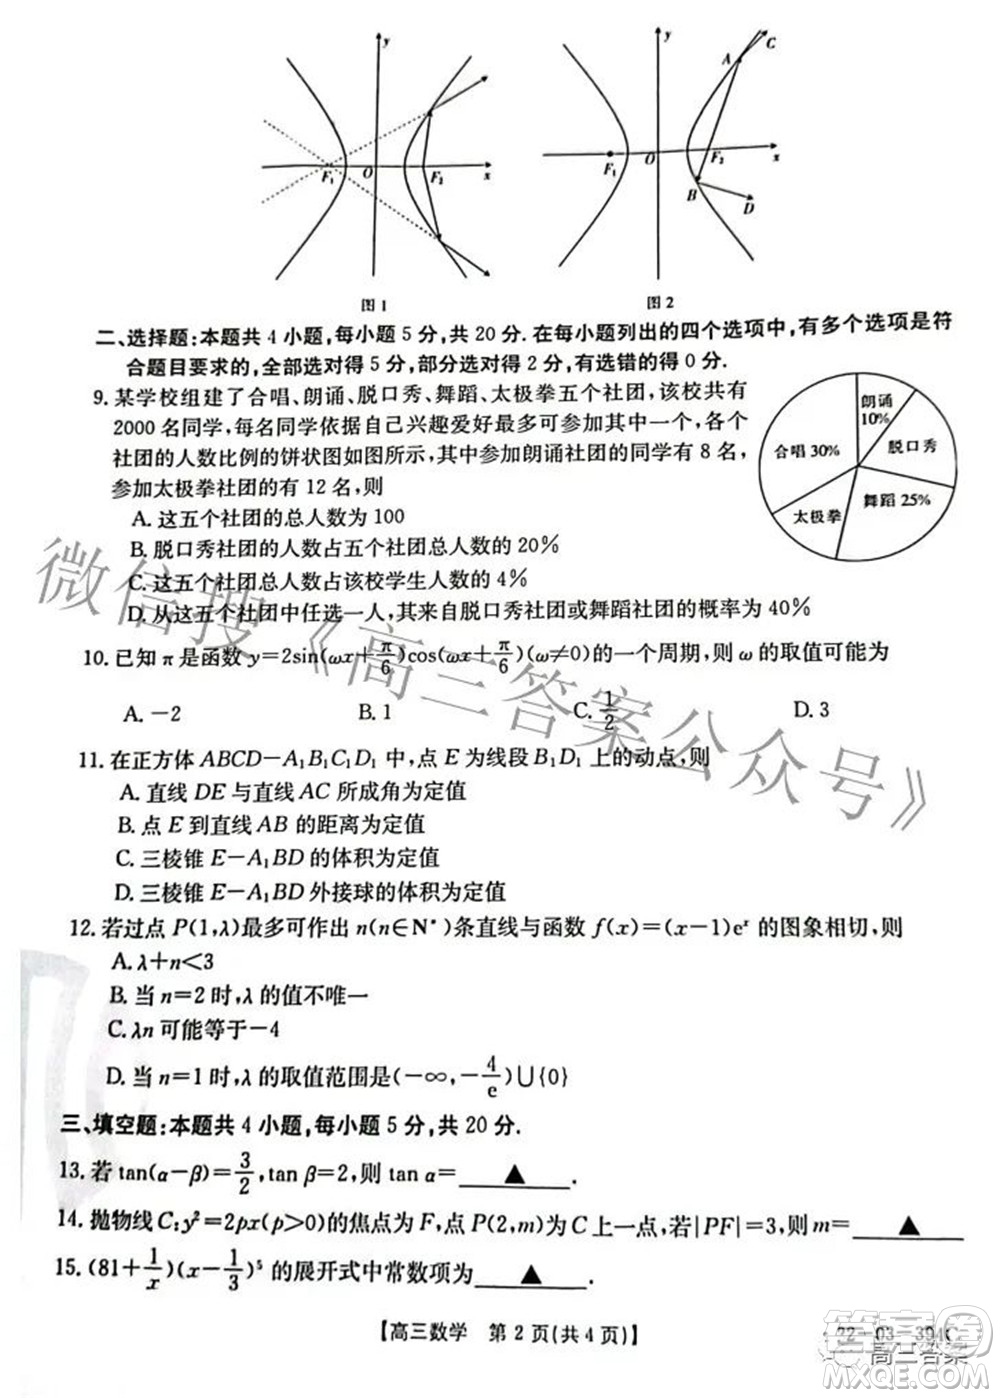 y
x
O
F₁
F₂
图1
y
x
O
F₁
F₂
A
B
C
D
图2
二、选择题:本题共 4 小题,每小题 5 分,共 20 分. 在每小题列出的四个选项中,有多个选项是符
合题目要求的,全部选对得 5 分,部分选对得 2 分,有选错的得 0 分.
9. 某学校组建了合唱、朗诵、脱口秀、舞蹈、太极拳五个社团,该校共有
2000 名同学,每名同学依据自己兴趣爱好最多可参加其中一个,各个
社团的人数比例的饼状图如图所示,其中参加朗诵社团的同学有 8 名,
参加太极拳社团的有 12 名,则
合唱 30%
朗诵
10%
脱口秀
舞蹈 25%
太极拳
A. 这五个社团的总人数为 100
B. 脱口秀社团的人数占五个社团总人数的 20%
C. 这五个社团总人数占该校学生人数的 4%
D. 从这五个社团中任选一人,其来自脱口秀社团或舞蹈社团的概率为 40%
10. 已知 π 是函数 y=2sin(ωx+π/6)cos(ωx+π/6)(ω≠0)的一个周期,则 ω 的取值可能为
A. −2 B. 1 C. 1/2 D. 3
11. 在正方体 ABCD−A₁B₁C₁D₁ 中,点 E 为线段 B₁D₁ 上的动点,则
A. 直线 DE 与直线 AC 所成角为定值
B. 点 E 到直线 AB 的距离为定值
C. 三棱锥 E−A₁BD 的体积为定值
D. 三棱锥 E−A₁BD 外接球的体积为定值
12. 若过点 P(1,λ)最多可作出 n(n∈N*)条直线与函数 f(x)=(x−1)eˣ 的图象相切,则
A. λ+n<3
B. 当 n=2 时,λ 的值不唯一
C. λn 可能等于−4
D. 当 n=1 时,λ 的取值范围是(−∞,−4/e)∪{0}
三、填空题:本题共 4 小题,每小题 5 分,共 20 分.
13. 若 tan(α−β)=3/2,tan β=2,则 tan α=▲.
14. 抛物线 C:y²=2px(p>0)的焦点为 F,点 P(2,m)为 C 上一点,若|PF|=3,则 m=▲
15. (81+1/x)(x−1/3)⁵ 的展开式中常数项为▲.
【高三数学 第 2 页(共 4 页)】
22−03−394C
微信搜《高三答案公众号》
高三答案
MXQE.COM